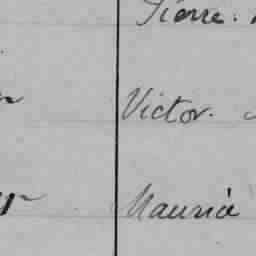 Pierre.
Victor.
Mauric